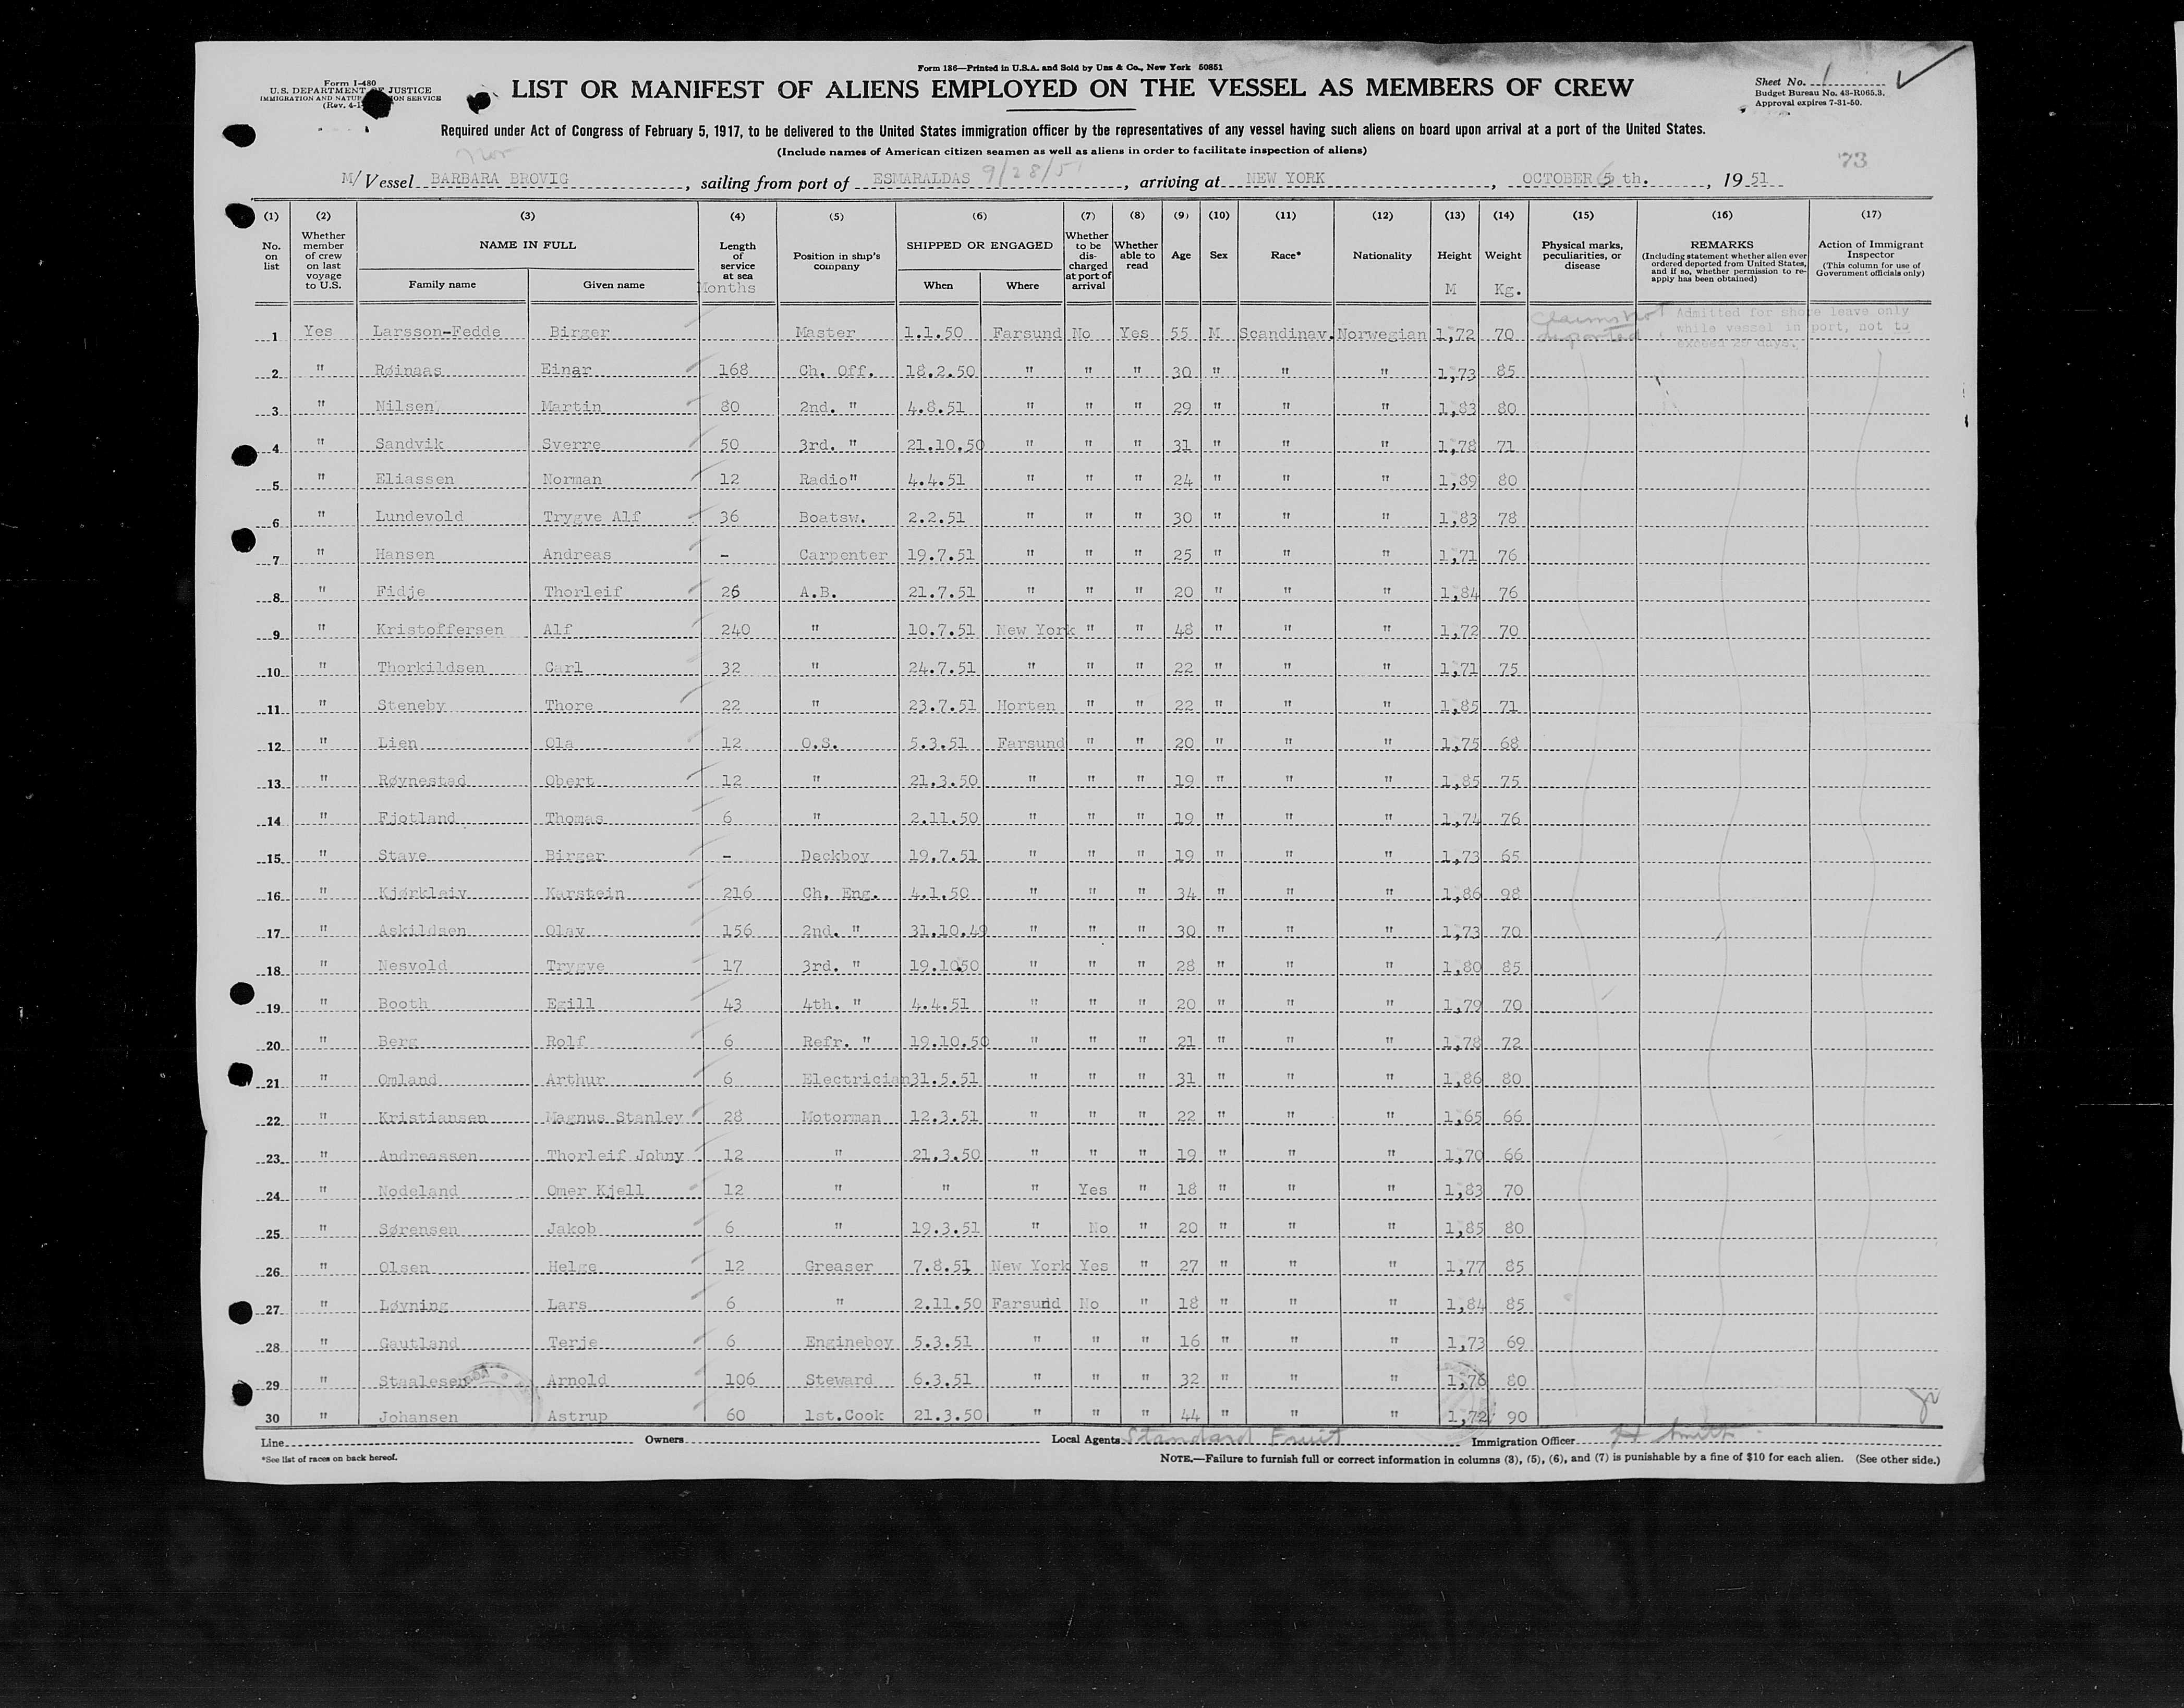 Form 186—Printed in U.S.A. and Sold by Unz & Co., New York 50851
Form I-480
U.S. DEPARTMENT OF JUSTICE
IMMIGRATION AND NATUR ON SERVICE
(Rev. 4-1
LIST OR MANIFEST OF ALIENS EMPLOYED ON THE VESSEL AS MEMBERS OF CREW
Sheet No. 1
Budget Bureau No. 43-R065.3.
Approval expires 7-31-50.
Required under Act of Congress of February 5, 1917, to be delivered to the United States immigration officer by the representatives of any vessel having such aliens on board upon arrival at a port of the United States.
(Include names of American citizen seamen as well as aliens in order to facilitate inspection of aliens)
Nor
73
M/ Vessel BARBARA BROVIG, sailing from port of ESMARALDAS 9/28/51, arriving at NEW YORK, OCTOBER 5 th., 19 51
(1) (2) (3) (4) (5) (6) (7) (8) (9) (10) (11) (12) (13) (14) (15) (16) (17)
No. on list Whether member of crew on last voyage to U.S. NAME IN FULL Family name Given name Length of service at sea Months Position in ship's company SHIPPED OR ENGAGED When Where Whether to be discharged at port of arrival Whether able to read Age Sex Race* Nationality Height M Weight Kg. Physical marks, peculiarities, or disease REMARKS (Including statement whether alien ever ordered deported from United States, and if so, whether permission to re-apply has been obtained) Action of Immigrant Inspector (This column for use of Government officials only)
1 Yes Larsson-Fedde Birger Master 1.1.50 Farsund No Yes 55 M Scandinav. Norwegian 1,72 70 Claims not deported Admitted for shore leave only while vessel in port, not to exceed 29 days.
2 " Røinaas Einar 168 Ch. Off. 18.2.50 " " " 30 " " " 1,73 85
3 " Nilsen Martin 80 2nd. " 4.8.51 " " " 29 " " " 1,83 80
4 " Sandvik Sverre 50 3rd. " 21.10.50 " " " 31 " " " 1,78 71
5 " Eliassen Norman 12 Radio" 4.4.51 " " " 24 " " " 1,89 80
6 " Lundevold Trygve Alf 36 Boatsw. 2.2.51 " " " 30 " " " 1,83 78
7 " Hansen Andreas - Carpenter 19.7.51 " " " 25 " " " 1,71 76
8 " Fidje Thorleif 26 A.B. 21.7.51 " " " 20 " " " 1,84 76
9 " Kristoffersen Alf 240 " 10.7.51 New York " " 48 " " " 1,72 70
10 " Thorkildsen Carl 32 " 24.7.51 " " " 22 " " " 1,71 75
11 " Steneby Thore 22 " 23.7.51 Horten " " 22 " " " 1,85 71
12 " Lien Ola 12 O.S. 5.3.51 Farsund " " 20 " " " 1,75 68
13 " Røynestad Obert 12 " 21.3.50 " " " 19 " " " 1,85 75
14 " Fjotland Thomas 6 " 2.11.50 " " " 19 " " " 1,74 76
15 " Stave Birger - Deckboy 19.7.51 " " " 19 " " " 1,73 65
16 " Kjørkleiv Karstein 216 Ch. Eng. 4.1.50 " " " 34 " " " 1,86 98
17 " Askildsen Olav 156 2nd. " 31.10.49 " " " 30 " " " 1,73 70
18 " Nesvold Trygve 17 3rd. " 19.1050 " " " 28 " " " 1,80 85
19 " Booth Egill 43 4th. " 4.4.51 " " " 20 " " " 1,79 70
20 " Berg Rolf 6 Refr. " 19.10.50 " " " 21 " " " 1,78 72
21 " Omland Arthur 6 Electrician 31.5.51 " " " 31 " " " 1,86 80
22 " Kristiansen Magnus Stanley 28 Motorman 12.3.51 " " " 22 " " " 1,65 66
23 " Andreassen Thorleif Johny 12 " 21.3.50 " " " 19 " " " 1,70 66
24 " Nodeland Omer Kjell 12 " " " Yes " 18 " " " 1,83 70
25 " Sørensen Jakob 6 " 19.3.51 " No " 20 " " " 1,85 80
26 " Olsen Helge 12 Greaser 7.8.51 New York Yes " 27 " " " 1,77 85
27 " Løvning Lars 6 " 2.11.50 Farsund No " 18 " " " 1,84 85
28 " Gautland Terje 6 Engineboy 5.3.51 " " " 16 " " " 1,73 69
29 " Staalesen Arnold 106 Steward 6.3.51 " " " 32 " " " 1,76 80
30 " Johansen Astrup 60 1st.Cook 21.3.50 " " " 44 " " " 1,72 90
Line Owners Local Agents Standard Fruit Immigration Officer H Smith
*See list of races on back hereof.
NOTE.—Failure to furnish full or correct information in columns (3), (5), (6), and (7) is punishable by a fine of $10 for each alien. (See other side.)